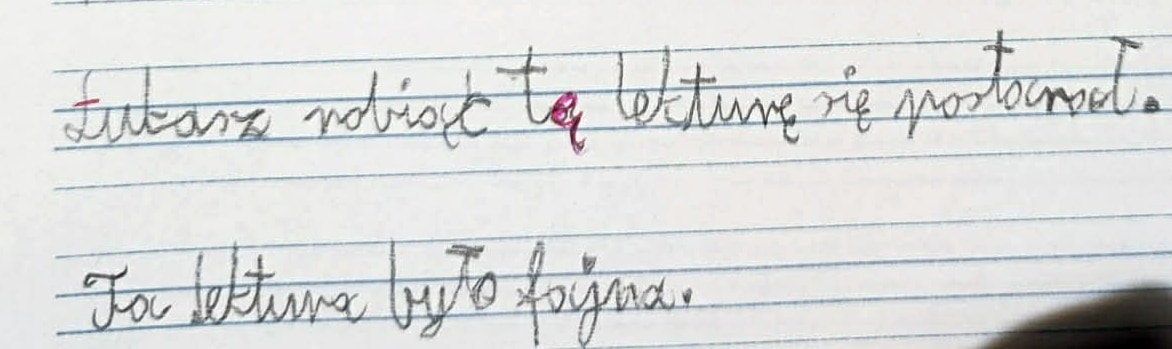 Łukasz robiąc tą lekturę się postarał.
Ta lektura była fajna.